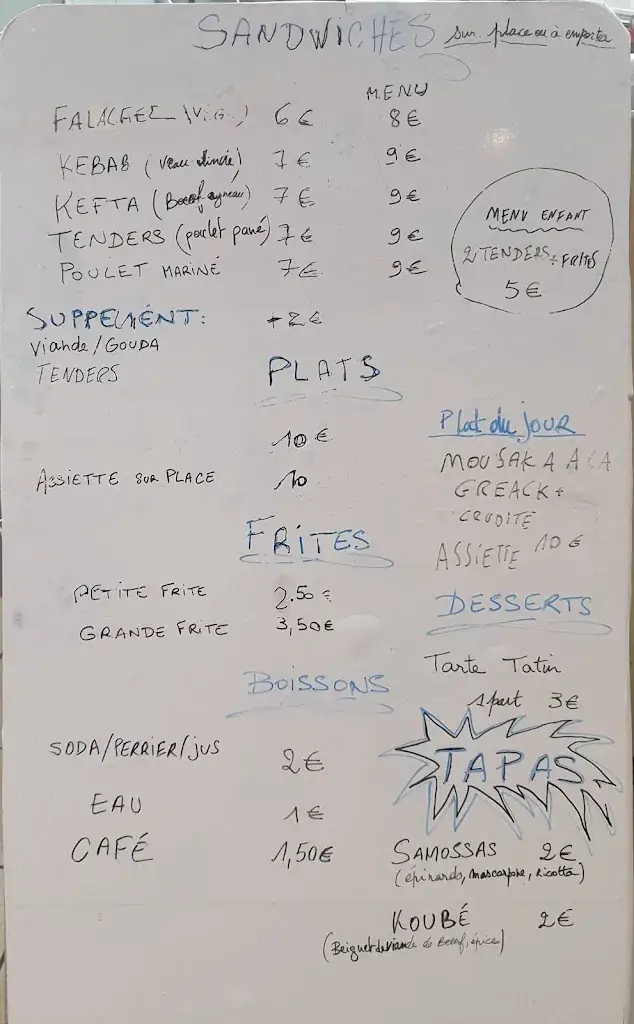 SANDWICHES sur place ou à emporter
MENU
FALAFEL (VÉG.) 6€ 8€
KEBAB (Veau dinde) 7€ 9€
KEFTA (Boeuf agneau) 7€ 9€
TENDERS (poulet pané) 7€ 9€
POULET MARINÉ 7€ 9€
MENU ENFANT
2 TENDERS + FRITES
5€
SUPPEMÉNT: +2€
Viande/GOUDA
TENDERS
PLATS
10€
ASSIETTE SUR PLACE 10
Plat du JOUR
MOUSAKA A LA
GREACK+
CRUDITE
ASSIETTE 10€
FRITES
PETITE FRITE 2.50€
GRANDE FRITE 3,50€
DESSERTS
Tarte Tatin
1 part 3€
BOISSONS
SODA/PERRIER/JUS 2€
EAU 1€
CAFÉ 1,50€
TAPAS
SAMOSSAS 2€
(épinards, mascarpone, Ricotta)
KOUBÉ 2€
(Beignet de viande de Boeuf, épice)